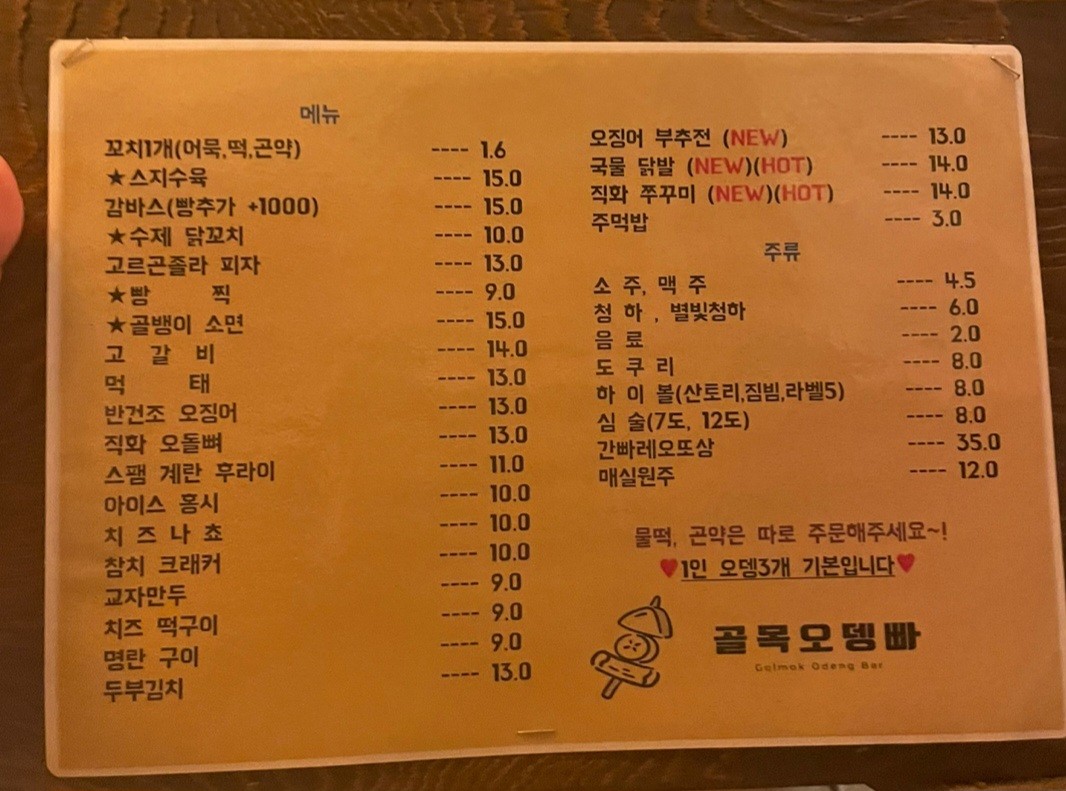 메뉴
꼬치1개(어묵,떡,곤약) ---- 1.6
★스지수육 ---- 15.0
감바스(빵추가 +1000) ---- 15.0
★수제 닭꼬치 ---- 10.0
고르곤졸라 피자 ---- 13.0
★빵 찍 ---- 9.0
★골뱅이 소면 ---- 15.0
고 갈 비 ---- 14.0
먹 태 ---- 13.0
반건조 오징어 ---- 13.0
직화 오돌뼈 ---- 13.0
스팸 계란 후라이 ---- 11.0
아이스 홍시 ---- 10.0
치 즈 나 쵸 ---- 10.0
참치 크래커 ---- 10.0
교자만두 ---- 9.0
치즈 떡구이 ---- 9.0
명란 구이 ---- 9.0
두부김치 ---- 13.0
오징어 부추전 (NEW) ---- 13.0
국물 닭발 (NEW)(HOT) ---- 14.0
직화 쭈꾸미 (NEW)(HOT) ---- 14.0
주먹밥 ---- 3.0
주류
소 주, 맥 주 ---- 4.5
청 하 , 별빛청하 ---- 6.0
음 료 ---- 2.0
도 쿠 리 ---- 8.0
하 이 볼(산토리,짐빔,라벨5) ---- 8.0
심 술(7도, 12도) ---- 8.0
간빠레오또상 ---- 35.0
매실원주 ---- 12.0
물떡, 곤약은 따로 주문해주세요~!
♥1인 오뎅3개 기본입니다♥
골목오뎅빠
Golmok Odeng Bar